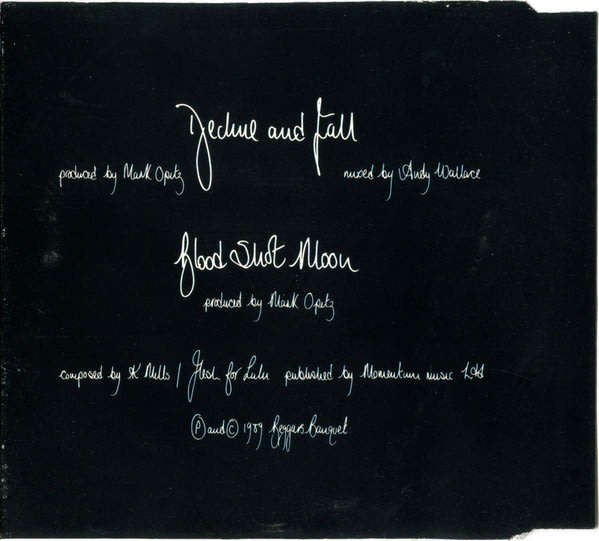 Decline and Fall
produced by Mark Opitz mixed by Andy Wallace
Blood Shot Moon
produced by Mark Opitz
composed by K Mills / Flesh for Lulu published by Momentum music Ltd
Ⓟ and © 1989 Beggars Banquet